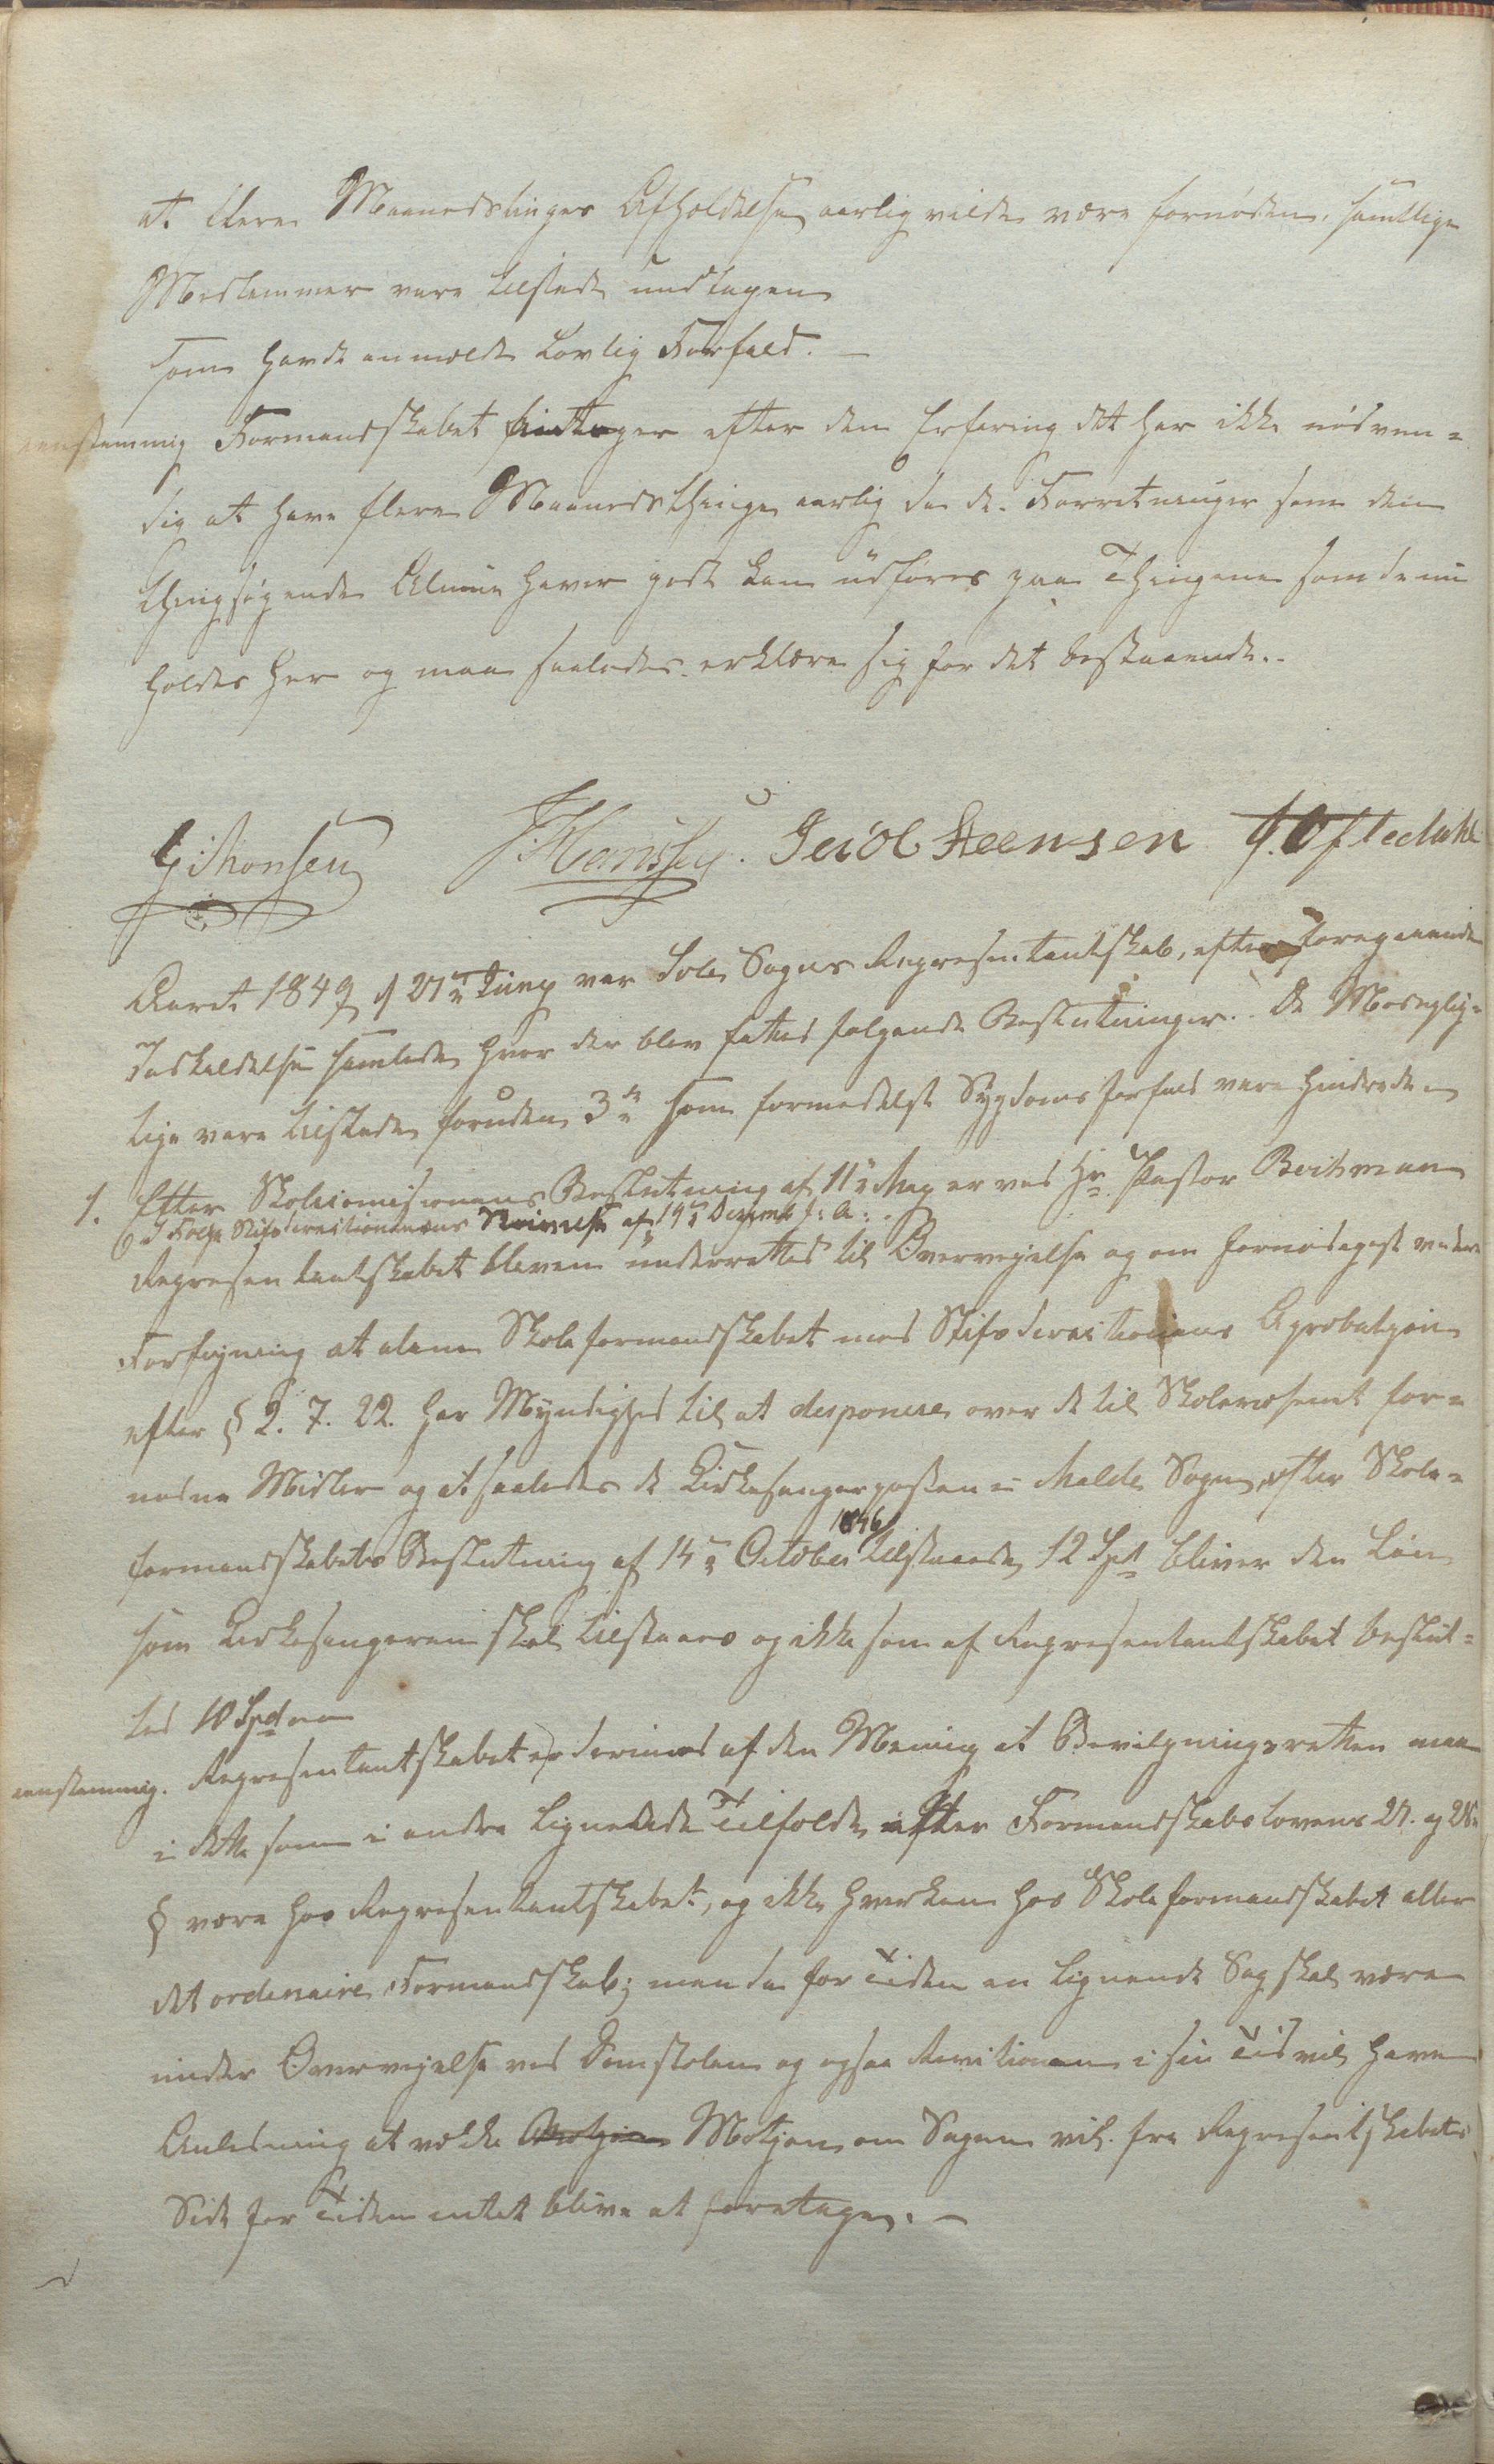 at flere Maanedstinges Afholdelse aarlig vilde være fornøden, samtlige
Medlemmer vare tilstede undtagen
som havde anmeldt Lovlig Forfald. —
eenstemmig Formandskabet finder efter den Erfaring det har ikke nødven-
dig at have flere Maanedsthinge aarlig da de Forretninger som den
thingsøgende Almue haver godt kan udføres paa Thingene som de nu
holdes her og maa saaledes erklære sig for det bestaaende..
G: Monsen J. Hanssen. Jacob Steensen G. Oftedahl
Aaret 1849 d 27de Juny var Sole Sogns Representantskab, efter foregaaende
Indkaldelse samlede hvor der blev fattet følgende Beslutninger. De Mødeplig-
tige vare tilstede foruden 3de som formedelst Sygdoms forfald vare hindrede
1. Efter Skolecomisionens Beslutning af 11te May er ved Hr. Pastor Beichman
I Følge Stiftsdirectionens Skrivelse af 19de Dezembr f: A:
Representantskabet bleven underrettet til Overvejelse og om fornødigest videre
Forføyning at alene Skoleformandskabet med Stiftsdirectionens Aprobatjon
efter § 2. 7. 22. har Myndighed til at disponere over de til Skolevæsenet for-
nødne Midler og at saaledes de Kirkesangerposten i Malde Sogn efter Skole-
formandskabets Beslutning af 14de October 1846 tilstaaede 12 Spd bliver den Løn
som Kirkesangeren skal tilstaaes og ikke som af Representantskabet beslut-
tet 10 Spd
eenstemmig. Representantskabet er derimod af den Mening at Bevilgningsretten maa
i dette som i andre Lignende Tilfælde efter Formandskabslovens 27. og 28
§ være hos Representantskabet, og ikke hverken hos Skoleformandskabet eller
det ordenaire Formandskab; men da for Tiden en lignende Sag skal være
under Overvejelse ved Domstolen og ogsaa Revitionen i sin Tid vil have
Anledning at vække Motjon om Sagen vil fra Representskabets
Side for Tiden intet blive at foretage. —